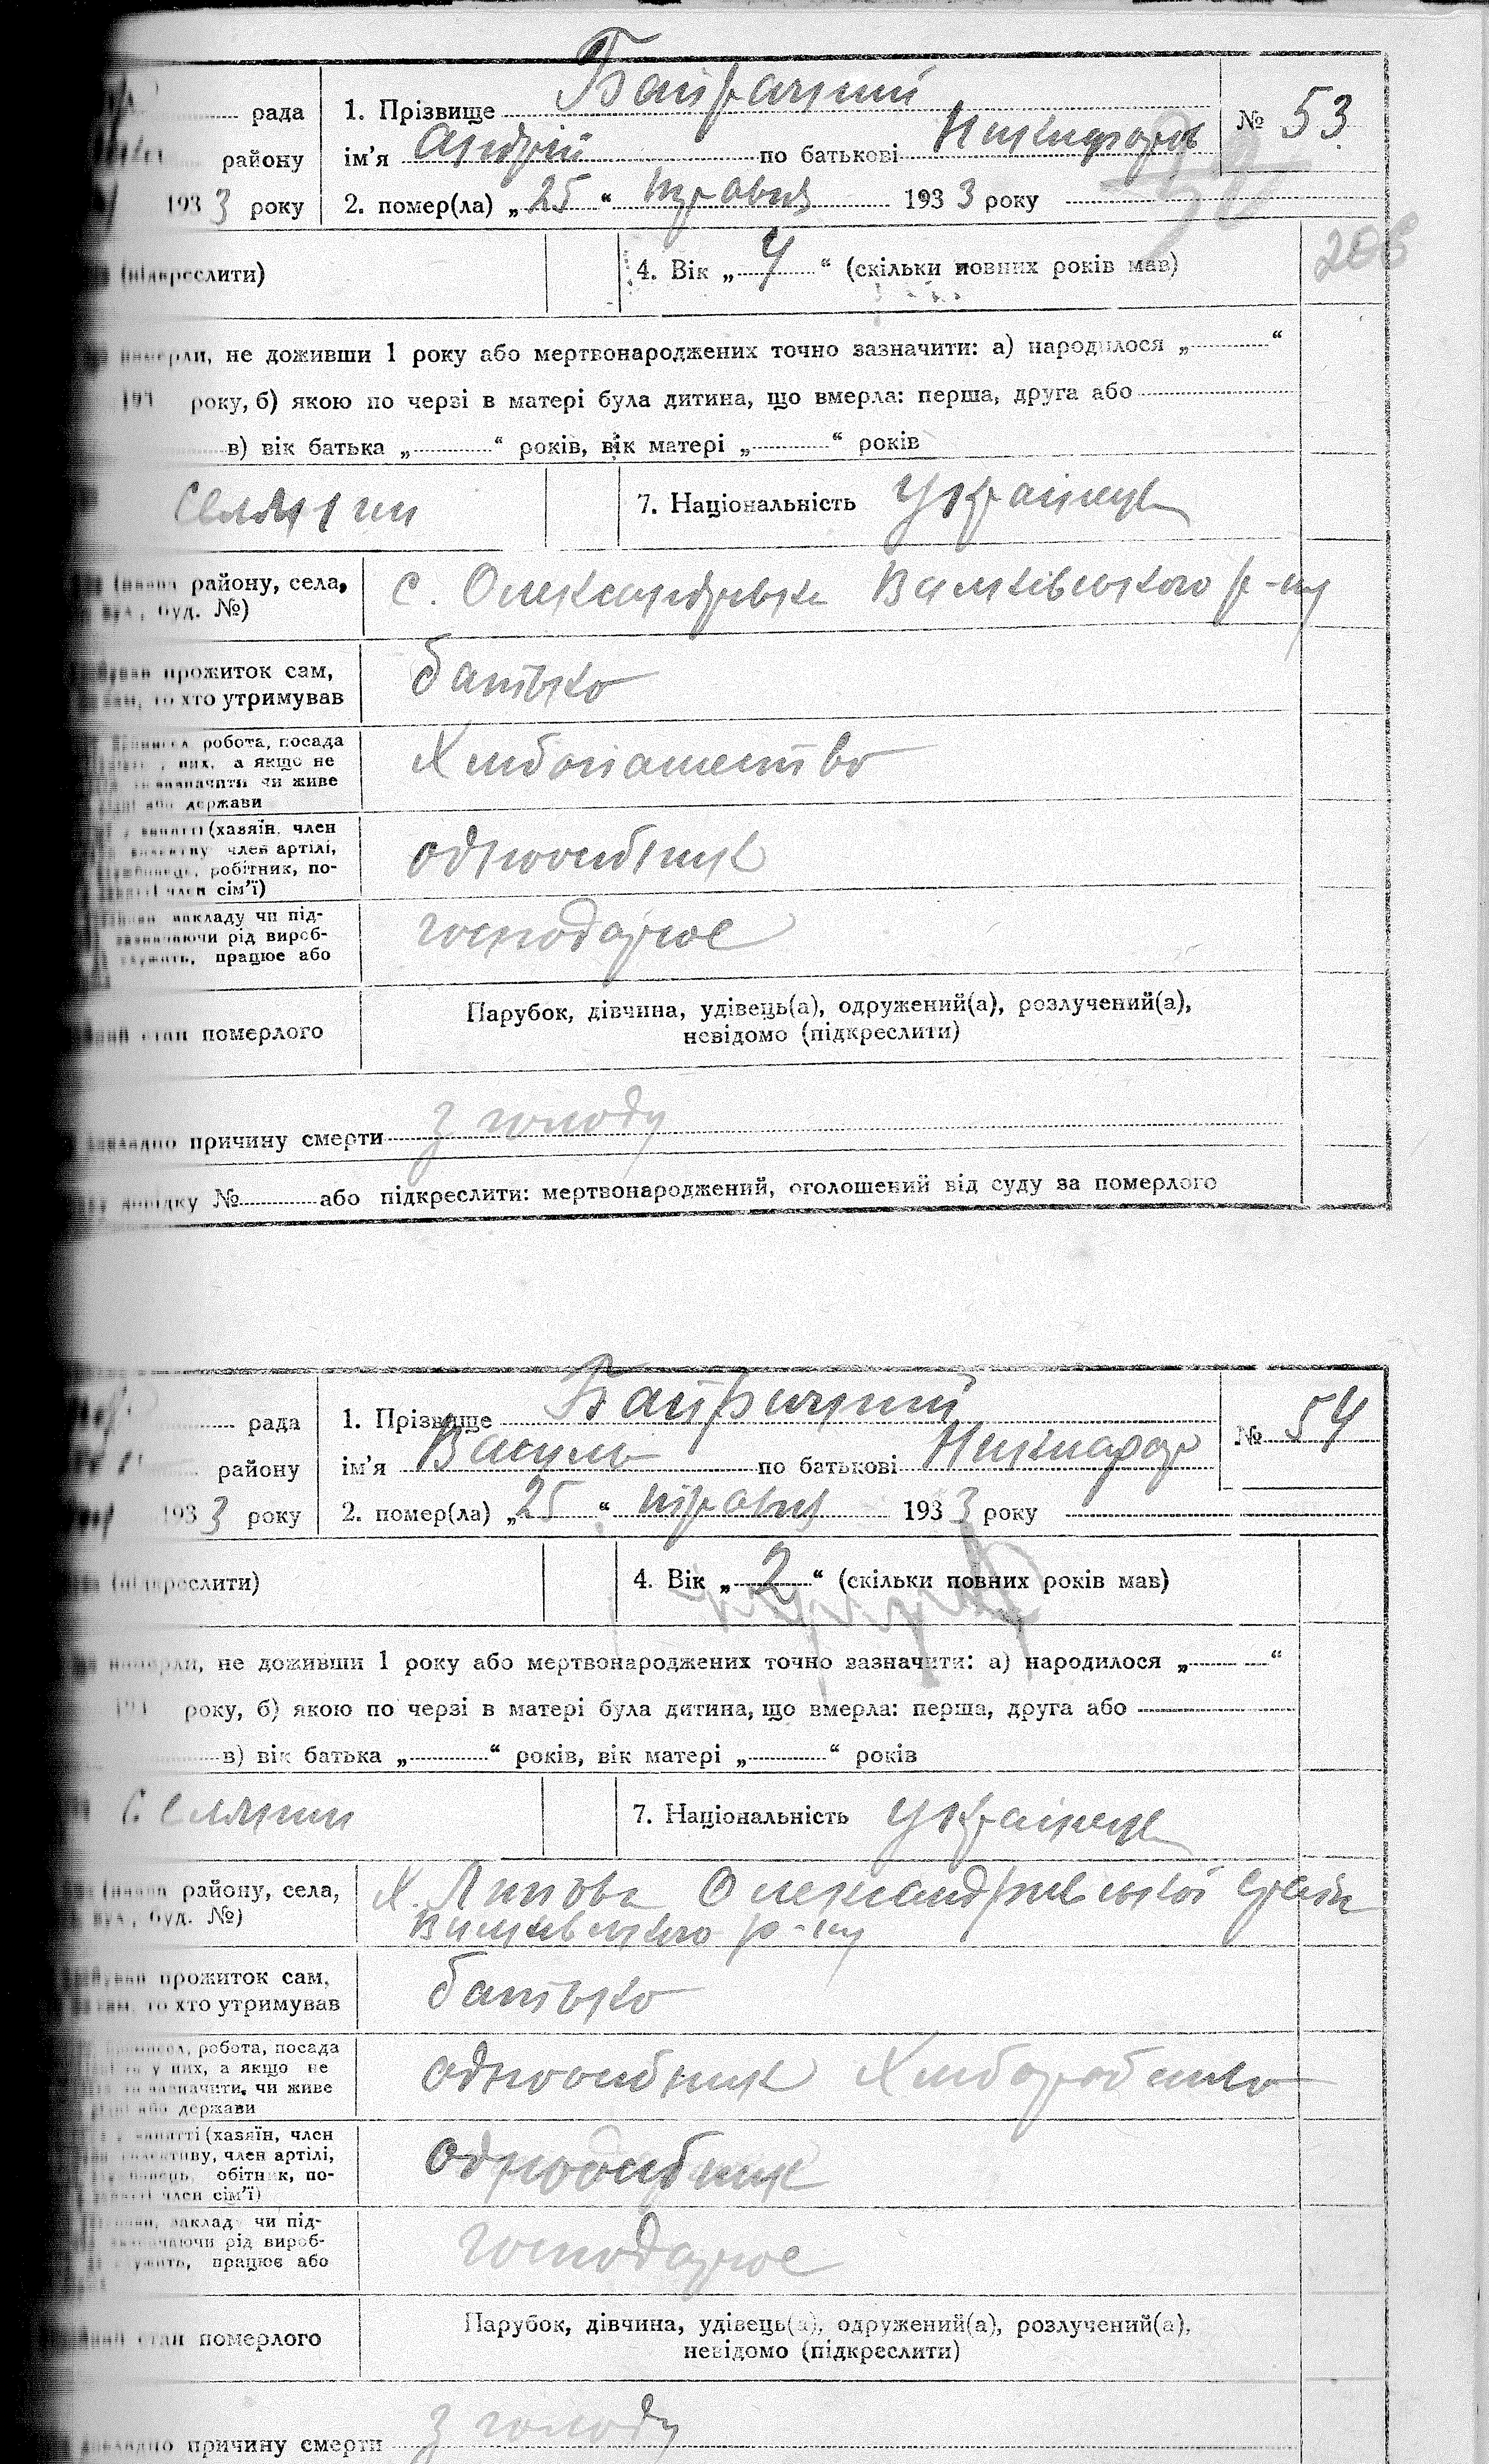 рада 1. Прізвище Байрачний № 53
району ім'я Андрій по батькові Никифоров
193 3 року 2. помер(ла) „ 25 “ травня 193 3 року
(підкреслити) 4. Вік „ 4 “ (скільки повних років мав) 206
вмерли, не доживши 1 року або мертвонароджених точно зазначити: а) народилося „ “
193 року, б) якою по черзі в матері була дитина, що вмерла: перша, друга або
в) вік батька „ “ років, вік матері „ “ років
Селянин 7. Національність Українець
району, села, с. Олександрівка Вільхівського р-ну
буд. №)
прожиток сам, батько
то хто утримував
робота, посада Хліборобство
них, а якщо не
зазначити чи живе
або держави
занятті (хазяїн, член одноосібник
член артілі,
робітник, по-
член сім'ї)
закладу чи під- господарює
зазначаючи рід вироб-
працює або
стан померлого Парубок, дівчина, удівець(а), одружений(а), розлучений(а),
невідомо (підкреслити)
причину смерти з голоду
№ або підкреслити: мертвонароджений, оголошений від суду за померлого
рада 1. Прізвище Байрачний № 54
району ім'я Василь по батькові Никифор
193 3 року 2. помер(ла) „ 25 “ травня 193 3 року
(підкреслити) 4. Вік „ 2 “ (скільки повних років мав)
вмерли, не доживши 1 року або мертвонароджених точно зазначити: а) народилося „ “
193 року, б) якою по черзі в матері була дитина, що вмерла: перша, друга або
в) вік батька „ “ років, вік матері „ “ років
Селянин 7. Національність Українець
району, села, х. Липова Олександрівської с/ради
вул., буд. №) р-ну
прожиток сам, батько
то хто утримував
робота, посада одноосібник Хлібороб
у них, а якщо не
зазначити, чи живе
або держави
занятті (хазяїн, член одноосібник
член артілі,
по-
член сім'ї)
заклад чи під- господарює
зазначаючи рід вироб-
працює або
стан померлого Парубок, дівчина, удівець(а), одружений(а), розлучений(а),
невідомо (підкреслити)
причину смерти з голоду